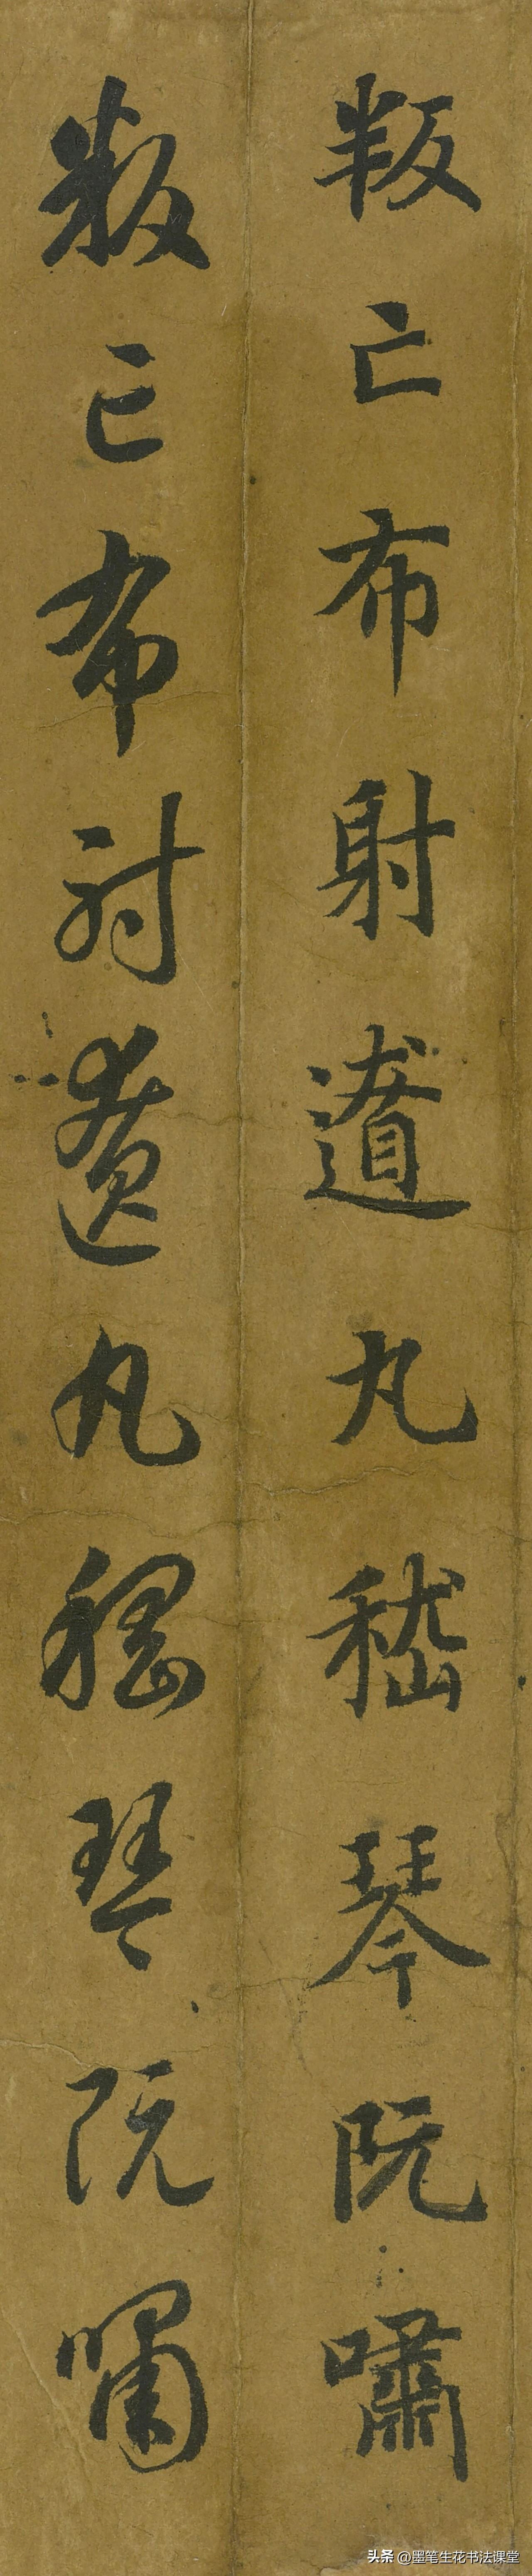 叛亡布射遼丸嵇琴阮嘯
叛亡布射遼丸嵇琴阮嘯
头条 @墨笔生花书法课堂